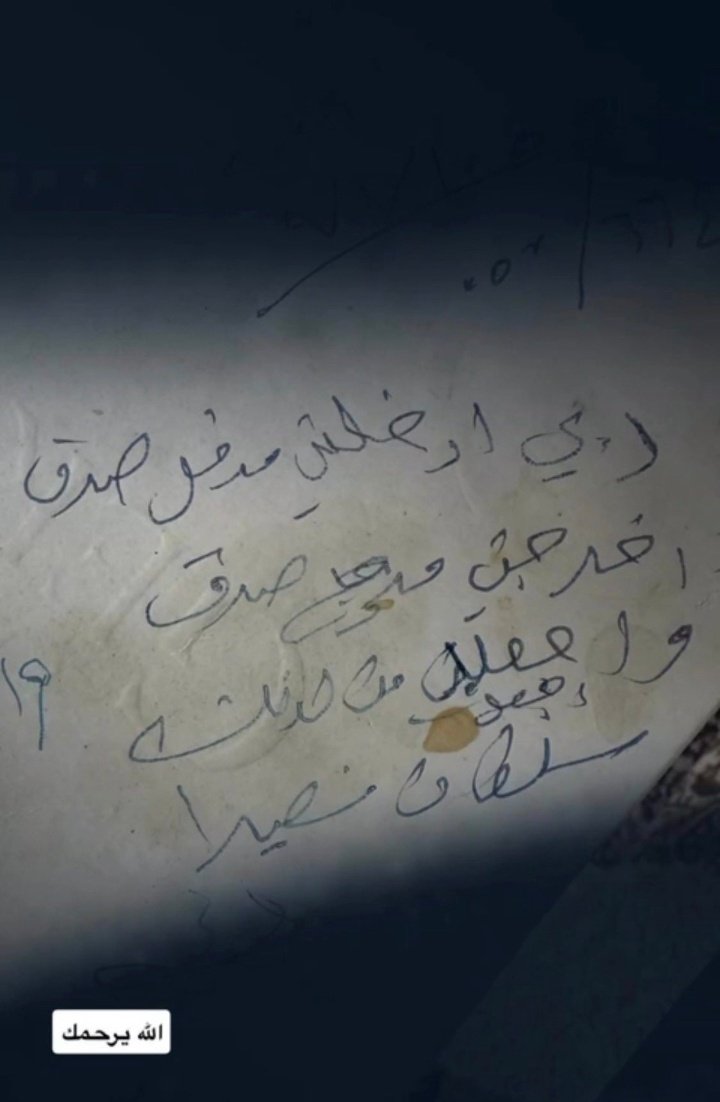 ربي ادخلني مدخل صدق
اخرجني مخرج صدق
واجعلني من لدنك
إجعل
سلطان نصيرا
١٩
الله يرحمك